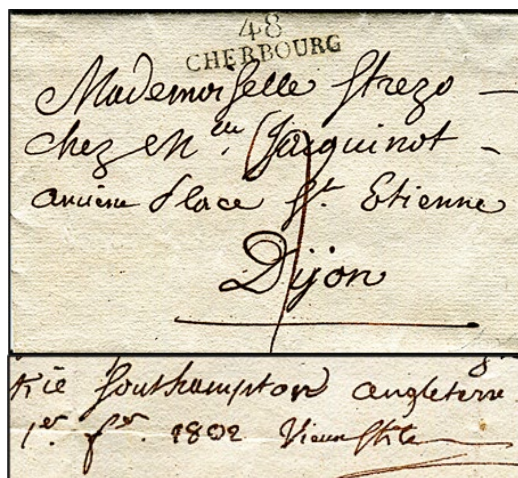 48
CHERBOURG
Mademoiselle Strezo
chez Mr. Jacquinot
ancière Place St. Etienne
Dijon
Southampton angleterre
1er fer. 1802 Vieux Stile